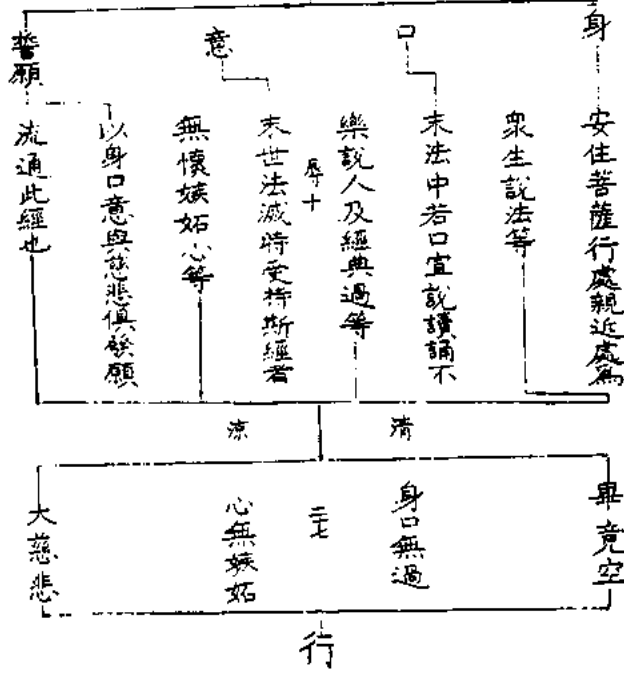 身
安住菩薩行處親近處為
眾生說法等
口
末法中若口宣說讀誦不
樂說人及經典過等
辱十
意
末世法滅時受持斯經者
無懷嫉妬心等
誓願
以身口意與慈悲俱發願
流通此經也
清
涼
畢竟空
身口無過
二七
心無嫉妬
大慈悲
行